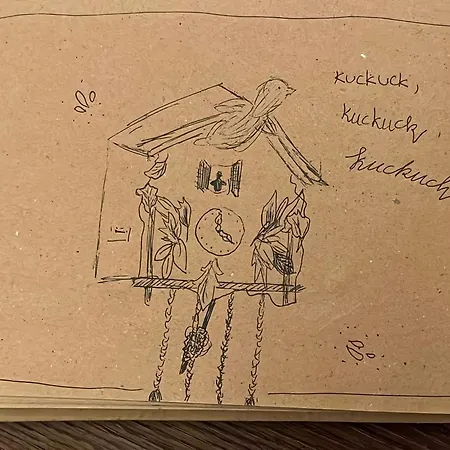 Kuckuck,
Kuckuck,
Kuckuck